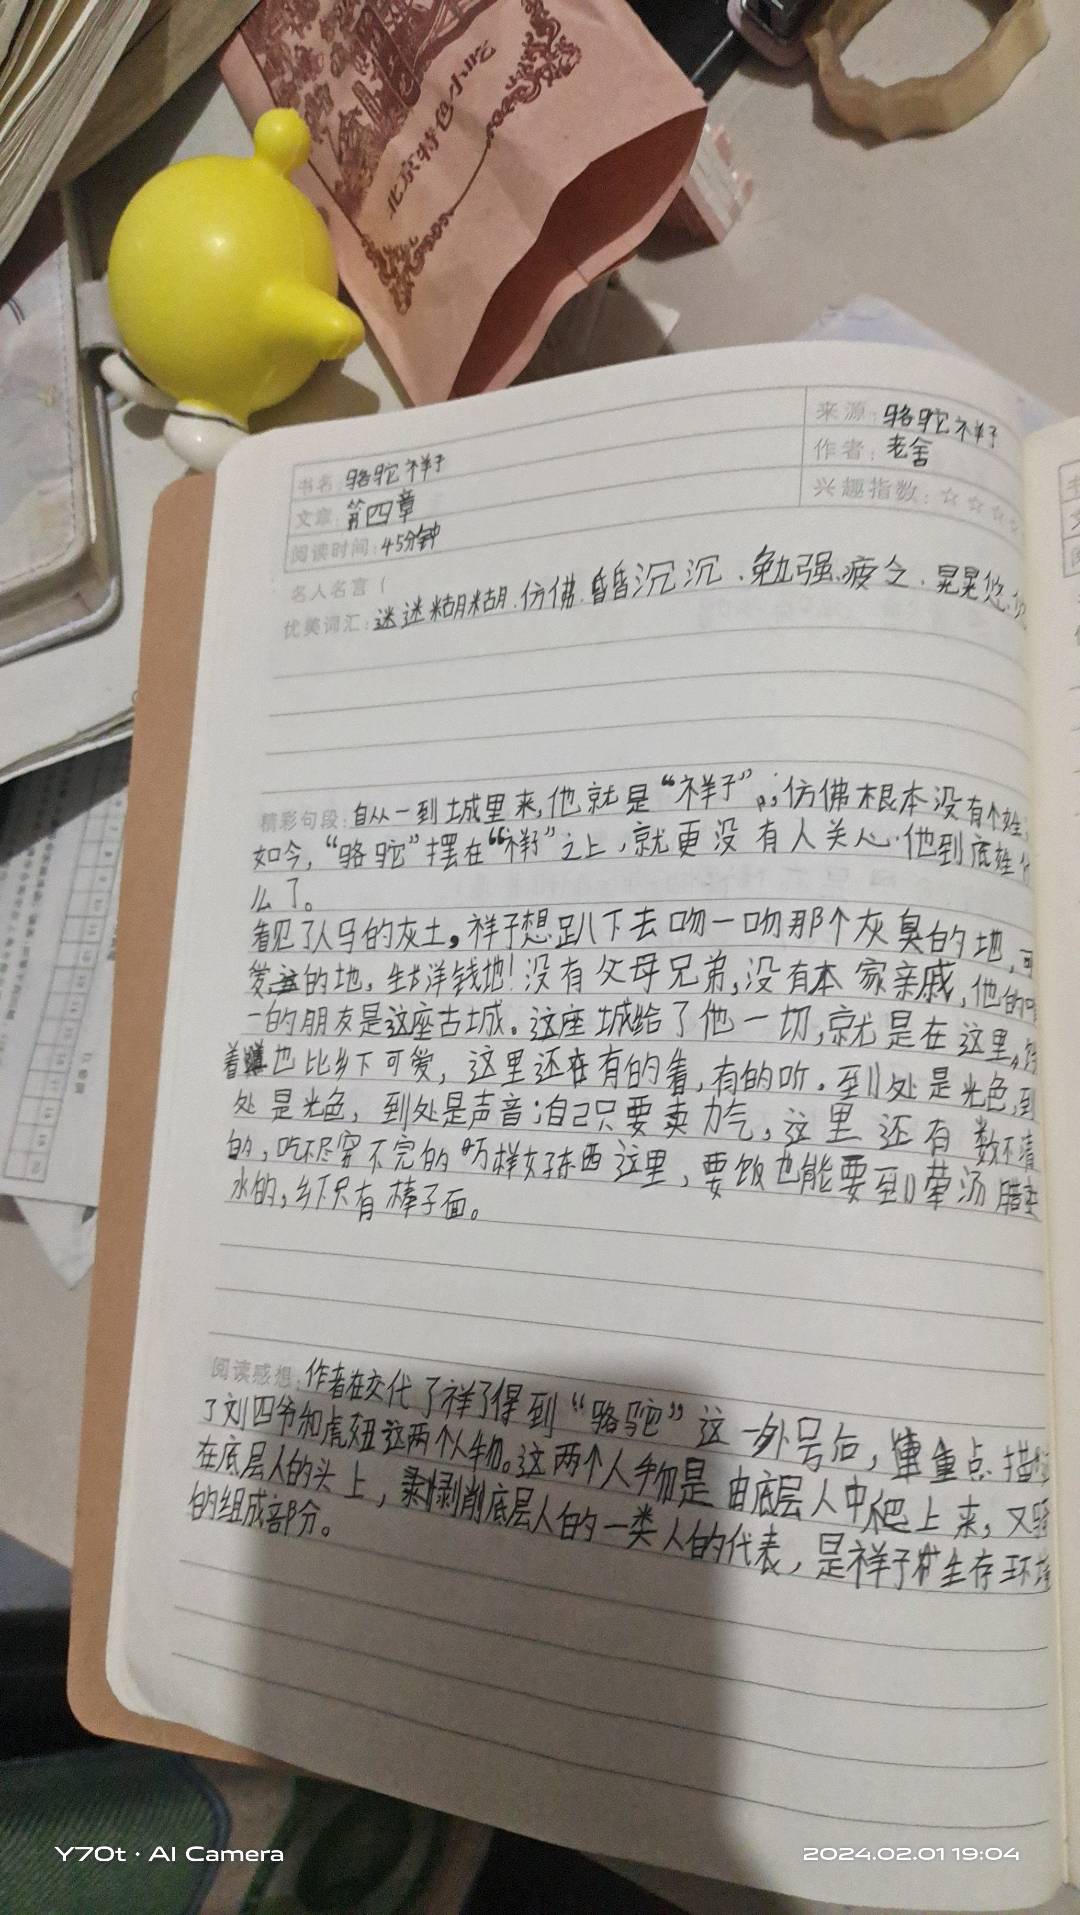 北京特色小吃
书名: 骆驼祥子
来源: 骆驼祥子
文章: 第四章
作者: 老舍
阅读时间: 45分钟
兴趣指数: ☆☆☆☆
名人名言 (
优美词汇: 迷迷糊糊.仿佛.昏昏沉沉.勉强.疲乏.晃晃悠
精彩句段: 自从一到城里来,他就是“祥子”,仿佛根本没有个姓;
如今,“骆驼”摆在“祥子”之上,就更没有人关心他到底姓什
么了。
看见了人马的灰土,祥子想趴下去吻一吻那个灰臭的地,可
爱的地,生长洋钱地!没有父母兄弟,没有本家亲戚,他的唯
一的朋友是这座古城。这座城给了他一切,就是在这里,饿
着也比乡下可爱,这里还有的看,有的听.到处是光色,到
处是光色,到处是声音;自己只要卖力气,这里还有数不清
的,吃不尽穿不完的万样好东西这里,要饭也能要到荤汤腊
水的,乡下只有棒子面。
阅读感想: 作者在交代了祥子得到“骆驼”这一外号后,重点描
了刘四爷和虎妞这两个人物。这两个人物是由底层人中爬上来,又骑
在底层人的头上,剥削底层人的一类人的代表,是祥子生存环境
的组成部分。
Y70t · AI Camera
2024.02.01 19:04